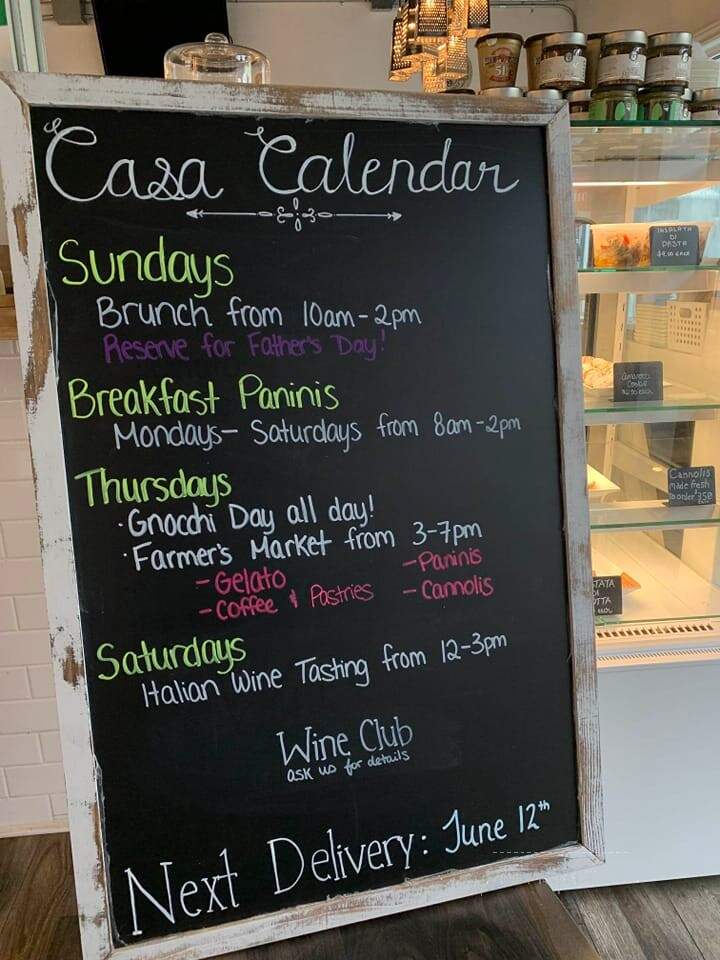 Casa Calendar
Sundays
Brunch from 10am-2pm
Reserve for Father's Day!
Breakfast Paninis
Mondays- Saturdays from 8am-2pm
Thursdays
·Gnocchi Day all day!
·Farmer's Market from 3-7pm
-Gelato -Paninis
-Coffee & Pastries -Cannolis
Saturdays
Italian Wine Tasting from 12-3pm
Wine Club
ask us for details
Next Delivery: June 12th
INSALATA
DI
PASTA
Amaretto
Cookie
Cannolis
made fresh
to order